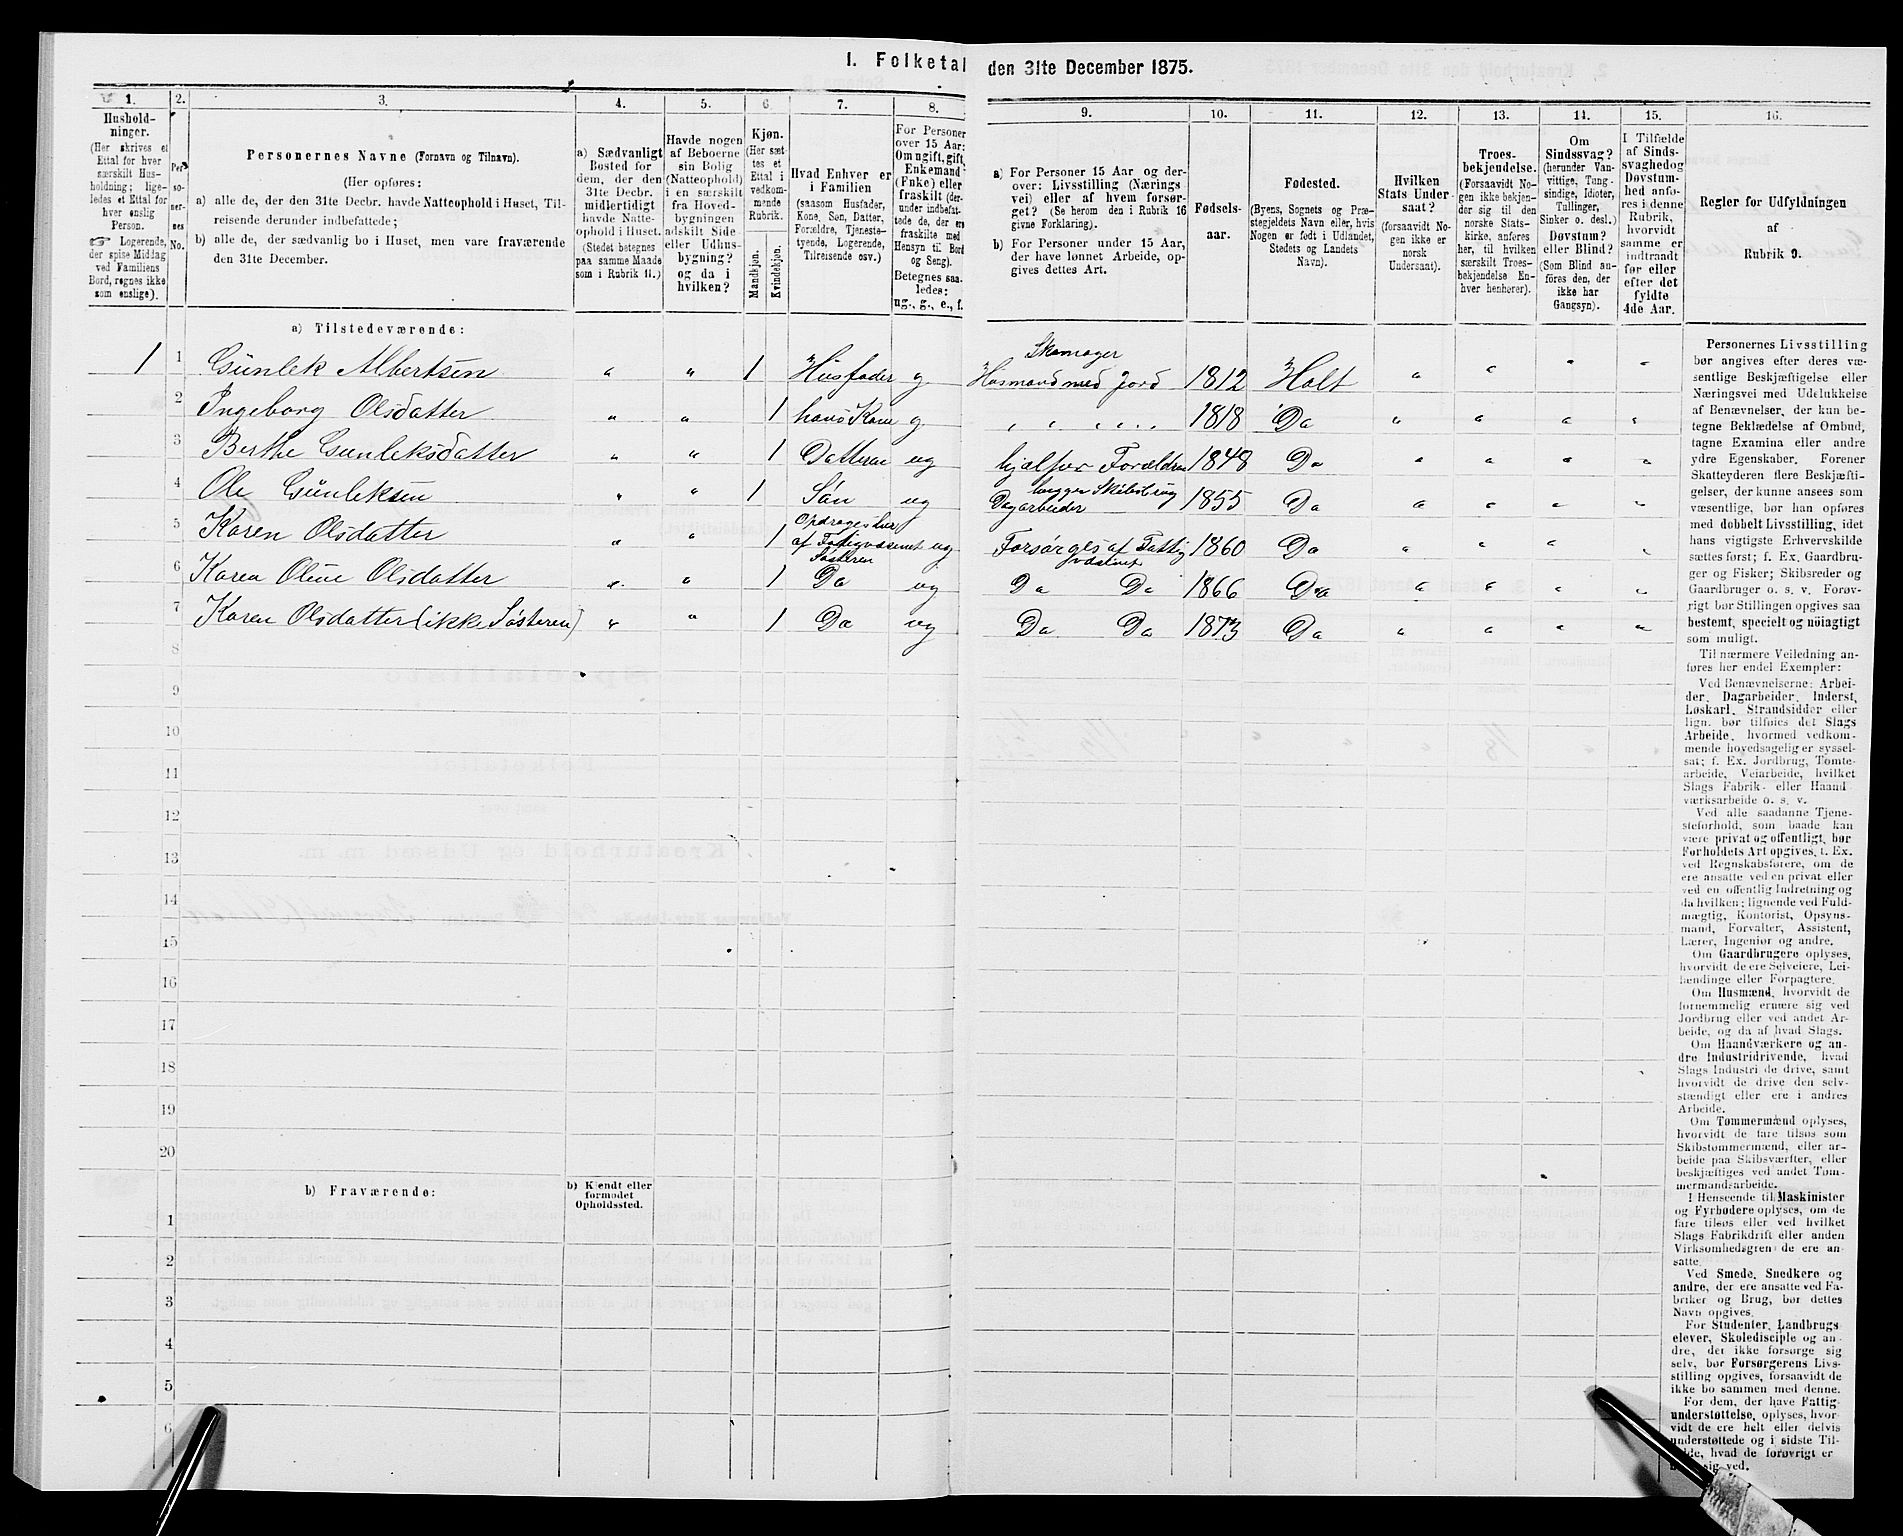 1. Folketal den 31te December 1875.
1. 2. 3. 4. 5. 6. 7. 8. 9. 10. 11. 12. 13. 14. 15. 16.
Hushold-
ninger.
(Her skrives et
Ettal for hver
særskilt Hus-
holdning; lige-
ledes et Ettal for
hver enslig
Person.
☞ Logerende,
der spise Middag
ved Familiens
Bord, regnes ikke
som enslige).
Per-
so-
ner-
nes
No.
Personernes Navne (Fornavn og Tilnavn).
(Her opføres:
a) alle de, der den 31te Decbr. havde Natteophold i Huset, Til-
reisende derunder indbefattede;
b) alle de, der sædvanlig bo i Huset, men vare fraværende
den 31te December.
a) Sædvanligt
Bosted for
dem, der den
31te Decbr.
midlertidigt
havde Natte-
ophold i Huset.
(Stedet betegnes
paa samme Maade
som i Rubrik 11.)
Havde nogen
af Beboerne
sin Bolig
(Natteophold)
i en særskilt
fra Hoved-
bygningen
adskilt Side-
eller Udhus-
bygning?
og da i
hvilken?
Kjøn.
(Her sæt-
tes et
Ettal i
vedkom-
mende
Rubrik.
Mandkjøn.
Kvindekjøn.
Hvad Enhver er
i Familien
(saasom Husfader,
Kone, Søn, Datter,
Forældre, Tjeneste-
tyende, Logerende,
Tilreisende osv.)
For Personer
over 15 Aar:
Om ugift, gift,
Enkemand
(Enke) eller
fraskilt (der-
under indbefat-
tede de, der ere
fraskilte med
Hensyn til Bord
og Seng).
Betegnes saa-
ledes:
ug., g., e., f.
a) For Personer 15 Aar og der-
over: Livsstilling (Nærings-
vei) eller af hvem forsør-
get? (Se herom den i Rubrik 16
givne Forklaring).
b) For Personer under 15 Aar,
der have lønnet Arbeide, op-
gives dettes Art.
Fødsels-
aar.
Fødested.
(Byens, Sognets og Præ-
stegjeldets Navn eller, hvis
Nogen er født i Udlandet,
Stedets og Landets
Navn).
Hvilken
Stats Under-
saat?
(forsaavidt No-
gen ikke er
norsk
Undersaat).
Troes-
bekjendelse.
(Forsaavidt No-
gen ikke bekjen-
der sig til den
norske Stats-
kirke, anføres
her, til hvilken
særskilt Troes-
bekjendelse En-
hver henhører).
Om
Sindssvag?
(herunder Van-
vittige, Tung-
sindige, Idioter,
Tullinger,
Sinker o. desl.)
Døvstum?
eller Blind?
(Som Blind an-
føres den, der
ikke har
Gangsyn).
I Tilfælde
af Sinds-
svaghed og
Døvstum-
hed anfø-
res i denne
Rubrik,
hvorvidt
samme er
indtraadt
før eller
efter det
fyldte
4de Aar.
Regler for Udfyldningen
af
Rubrik 9.
a) Tilstedeværende:
1 1 Gunlek Albertsen " " 1 Husfader g. Skomager Husmand med Jord 1812 Holt " " " "
2 Ingeborg Olsdatter " " 1 hans Kone g " " " " 1818 Do " " " "
3 Berthe Gunleksdatter " " 1 Datteren ug hjælper Forældrene 1848 Do " " " "
4 Ole Gunleksen " " 1 Søn ug Dagarbeider 1855 Do " " " "
5 Karen Olsdatter " " 1 Opdrages her af Fattigvæsenet ug Forsørges af Fattigvæsenet 1860 Do " " " "
6 Karen Oline Olsdatter " " 1 Søsteren Do ug Do Do 1866 Do " " " "
7 Karen Olsdatter (ikke Søsteren) " " 1 Do ug Do Do 1873 Do " " " "
8
9
10
11
12
13
14
15
16
17
18
19
20
b) Fraværende:
b) Kjendt eller
formodet
Opholdssted.
1
2
3
4
5
6
Personernes Livsstilling
bør angives efter deres væ-
sentlige Beskjæftigelse eller
Næringsvei med Udelukkelse
af Benævnelser, der kun be-
tegne Beklædelse af Ombud,
tagne Examina eller andre
ydre Egenskaber. Forener
Skatteyderen flere Beskjæfti-
gelser, der kunne ansees som
væsentlige, bør han opføres
med dobbelt Livsstilling, idet
hans vigtigste Erhvervskilde
sættes først; f. Ex. Gaardbru-
ger og Fisker; Skibsreder og
Gaardbruger o. s. v. Forøv-
rigt bør Stillingen opgives saa
bestemt, specielt og nøiagtigt
som muligt.
Til nærmere Veiledning an-
føres her endel Exempler:
Ved Benævnelserne: Arbei-
der, Dagarbeider, Inderst,
Løskarl, Strandsidder eller
lign. bør tilføies det Slags
Arbeide, hvormed vedkom-
mende hovedsagelig er syssel-
sat; f. Ex. Jordbrug, Tømte-
arbeide, Veiarbeide, hvilket
Slags Fabrik- eller Haand-
værksarbeide o. s. v.
Ved alle saadanne Tjene-
steforhold, som baade kan
være privat og offentligt, bør
Forholdets Art opgives, f. Ex.
ved Regnskabsførere, om de
ere ansatte ved en privat eller
ved en offentlig Indretning og
da hvilken; lignende ved Fuld-
mægtig, Kontorist, Opsyns-
mand, Forvalter, Assistent,
Lærer, Ingeniør og andre.
Om Gaardbrugere oplyses,
hvorvidt de ere Selveiere, Lei-
lændinge eller Forpagtere.
Om Husmænd, hvorvidt de
fornemmelig ernære sig ved
Jordbrug eller ved andet Ar-
beide, og da af hvad Slags.
Om Haandværkere og an-
dre Industridrivende, hvad
Slags Industri de drive, samt
hvorvidt de drive den selv-
stændigt eller ere i andres
Arbeide.
Om Tømmermænd oplyses,
hvorvidt de fare tilsøs som
Skibstømmermænd, eller ar-
beide paa Skibsværfter, eller
beskjæftiges ved andet Tøm-
mermandsarbeide.
I Henseende til Maskinister
og Fyrbødere oplyses, om de
fare tilsøs eller ved hvilket
Slags Fabrikdrift eller anden
Virksomhedsgren de ere an-
satte.
Ved Smede, Snedkere og
andre, der ere ansatte ved Fa-
briker og Brug, bør dettes
Navn opgives.
For Studenter, Landbrugs-
elever, Skoledisciple og an-
dre, der ikke forsørge sig
selv, bør Forsørgerens Livs-
stilling opgives, forsaavidt de
ikke bo sammen med denne.
For dem, der have Fattig-
understøttelse, oplyses, hvor-
vidt de ere helt eller delvis
understøttede og i sidste Til-
fælde, hvad de forøvrigt er
sig ved.